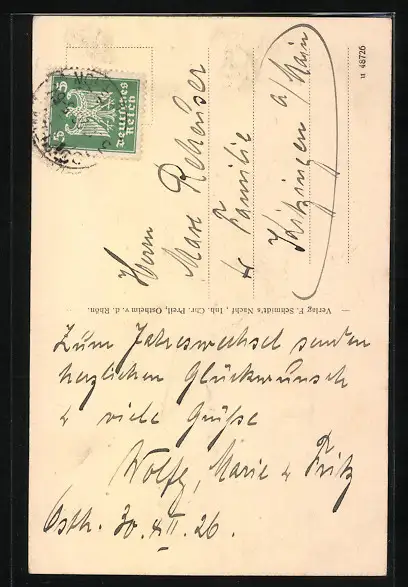 5 5
Deutsches
Reich
Herrn
Max Rehäuser
& Familie
Kitzingen a/Main
u 48726
Verlag F. Schmidt's Nachf., Inh. Chr. Preil, Ostheim v. d. Rhön.
Zum Jahreswechsel senden
herzlichen Glückwunsch
& viele Grüße
Wolfg, Marie & Fritz
Osth. 30.XII.26.